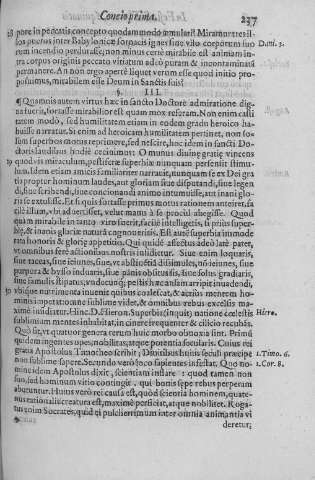 Concio prima. 237
pore in peccatis concepto quodammodo æmulari? Miramur tres il-
los pueros inter Babylonicæ fornacis ignes sine vitio corporum suo Dani. 3.
rum incendio perdurasse; non minus certe mirabile est animam in-
tra corpus originis peccato vitiatum adeo puram & incontaminatã
permanere. An non ergo aperte liquet verum esse quod initio pro-
posuimus, mirabilem esse Deum in Sanctis suis?
§. III.
¶ Quamuis autem virtus hæc in sancto Doctore admiratione dig-
na fuerit, fortasse mirabilior est quam mox referam. Non enim casti
tatem modo, sed humilitatem etiam in eodem gradu heroico ha-
buisse narratur. Si enim ad heroicam humilitatem pertinet, non so-
lum superbos motus reprimere, sed nescire, hoc idem in sancti Do-
ctoris laudibus hodie cecinimus: O munus diuinæ gratiæ vincens
quod vis miraculum, pestiferæ superbiæ nunquam persensit stimu-
lum. Idem etiam amicis familiariter narrauit, nunquam se ex Dei gra
tia propter hominum laudes, aut gloriam siue disputandi, siue legen
di, siue scribendi, siue concionandi animo intumuisse, aut inani glo-
ria se extulisse. Et si quis fortasse primus motus rationem anteiret, sta
tim illum, vbi aduertisset, velut manu à se procul abegisse. Quod
quam mirabile in tanto viro fuerit, facilè intelligetis, si prius super-
biæ, & inanis gloriæ naturã cognoueritis. Est autẽ superbia immode
rata honoris & gloriæ appetitio. Qui quidẽ affectus adeò latè patet,
vt omnibus ferè actionibus nostris insidietur. Siue enim loquaris,
siue taceas, siue ieiunes, siue, vt ab alijs dissimules, nõ ieiunes, siue
purpura & bysso induaris, siue pãnis obsitus sis, siue solus gradiaris,
siue famulis stipatus, vndecunq; pestis hæc ansam arripit inuadendi,
vbique nutrimenta inuenit quibus coalescat, & altius memtem ho-
minis impetat omne sublime videt, & omnibus rebus excelsis ma-
ximè insidiatur. Hinc D. Hieron. Superbia (inquit) natione cælestis Hiero.
sublimium mentes inhabitat, in cinere frequenter & cilicio recubãs.
Quò fit, vt quatuor genera rerum huic morbo obnoxia sint. Primũ
quidem ingentes opes, nobilitas, atque potentia sæcularis. Cuius rei
gratia Apostolus Timotheo scribit, Diuitibus huius seculi præcipe 1. Timo. 6.
non sublime sapere. Secundo verò loco sapientes infestat. Quo no- 1. Cor. 8.
mine idem Apostolus dixit, scientiam inflare: quod tamen non
suo, sed hominum vitio contingit, qui bonis sæpe rebus perperam
abutuntur. Huius verò rei causa est, quod scientia hominem, quate-
nus rationalis creatura est, maximè perficiat, atque nobilitet. Roga-
tus enim Socrates, quid ei pulcherrimum inter omnia animantia vi
deretur;